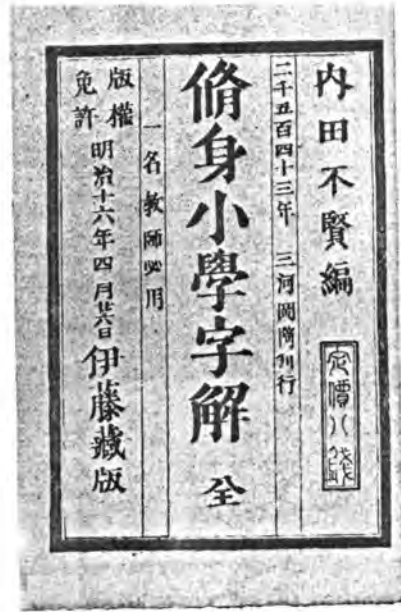 内田不賢編
定價八錢
二千五百四十三年 三河岡崎刋行
脩身小學字解 全
一名教師必用
版權免許 明治十六年四月廿六日 伊藤藏版